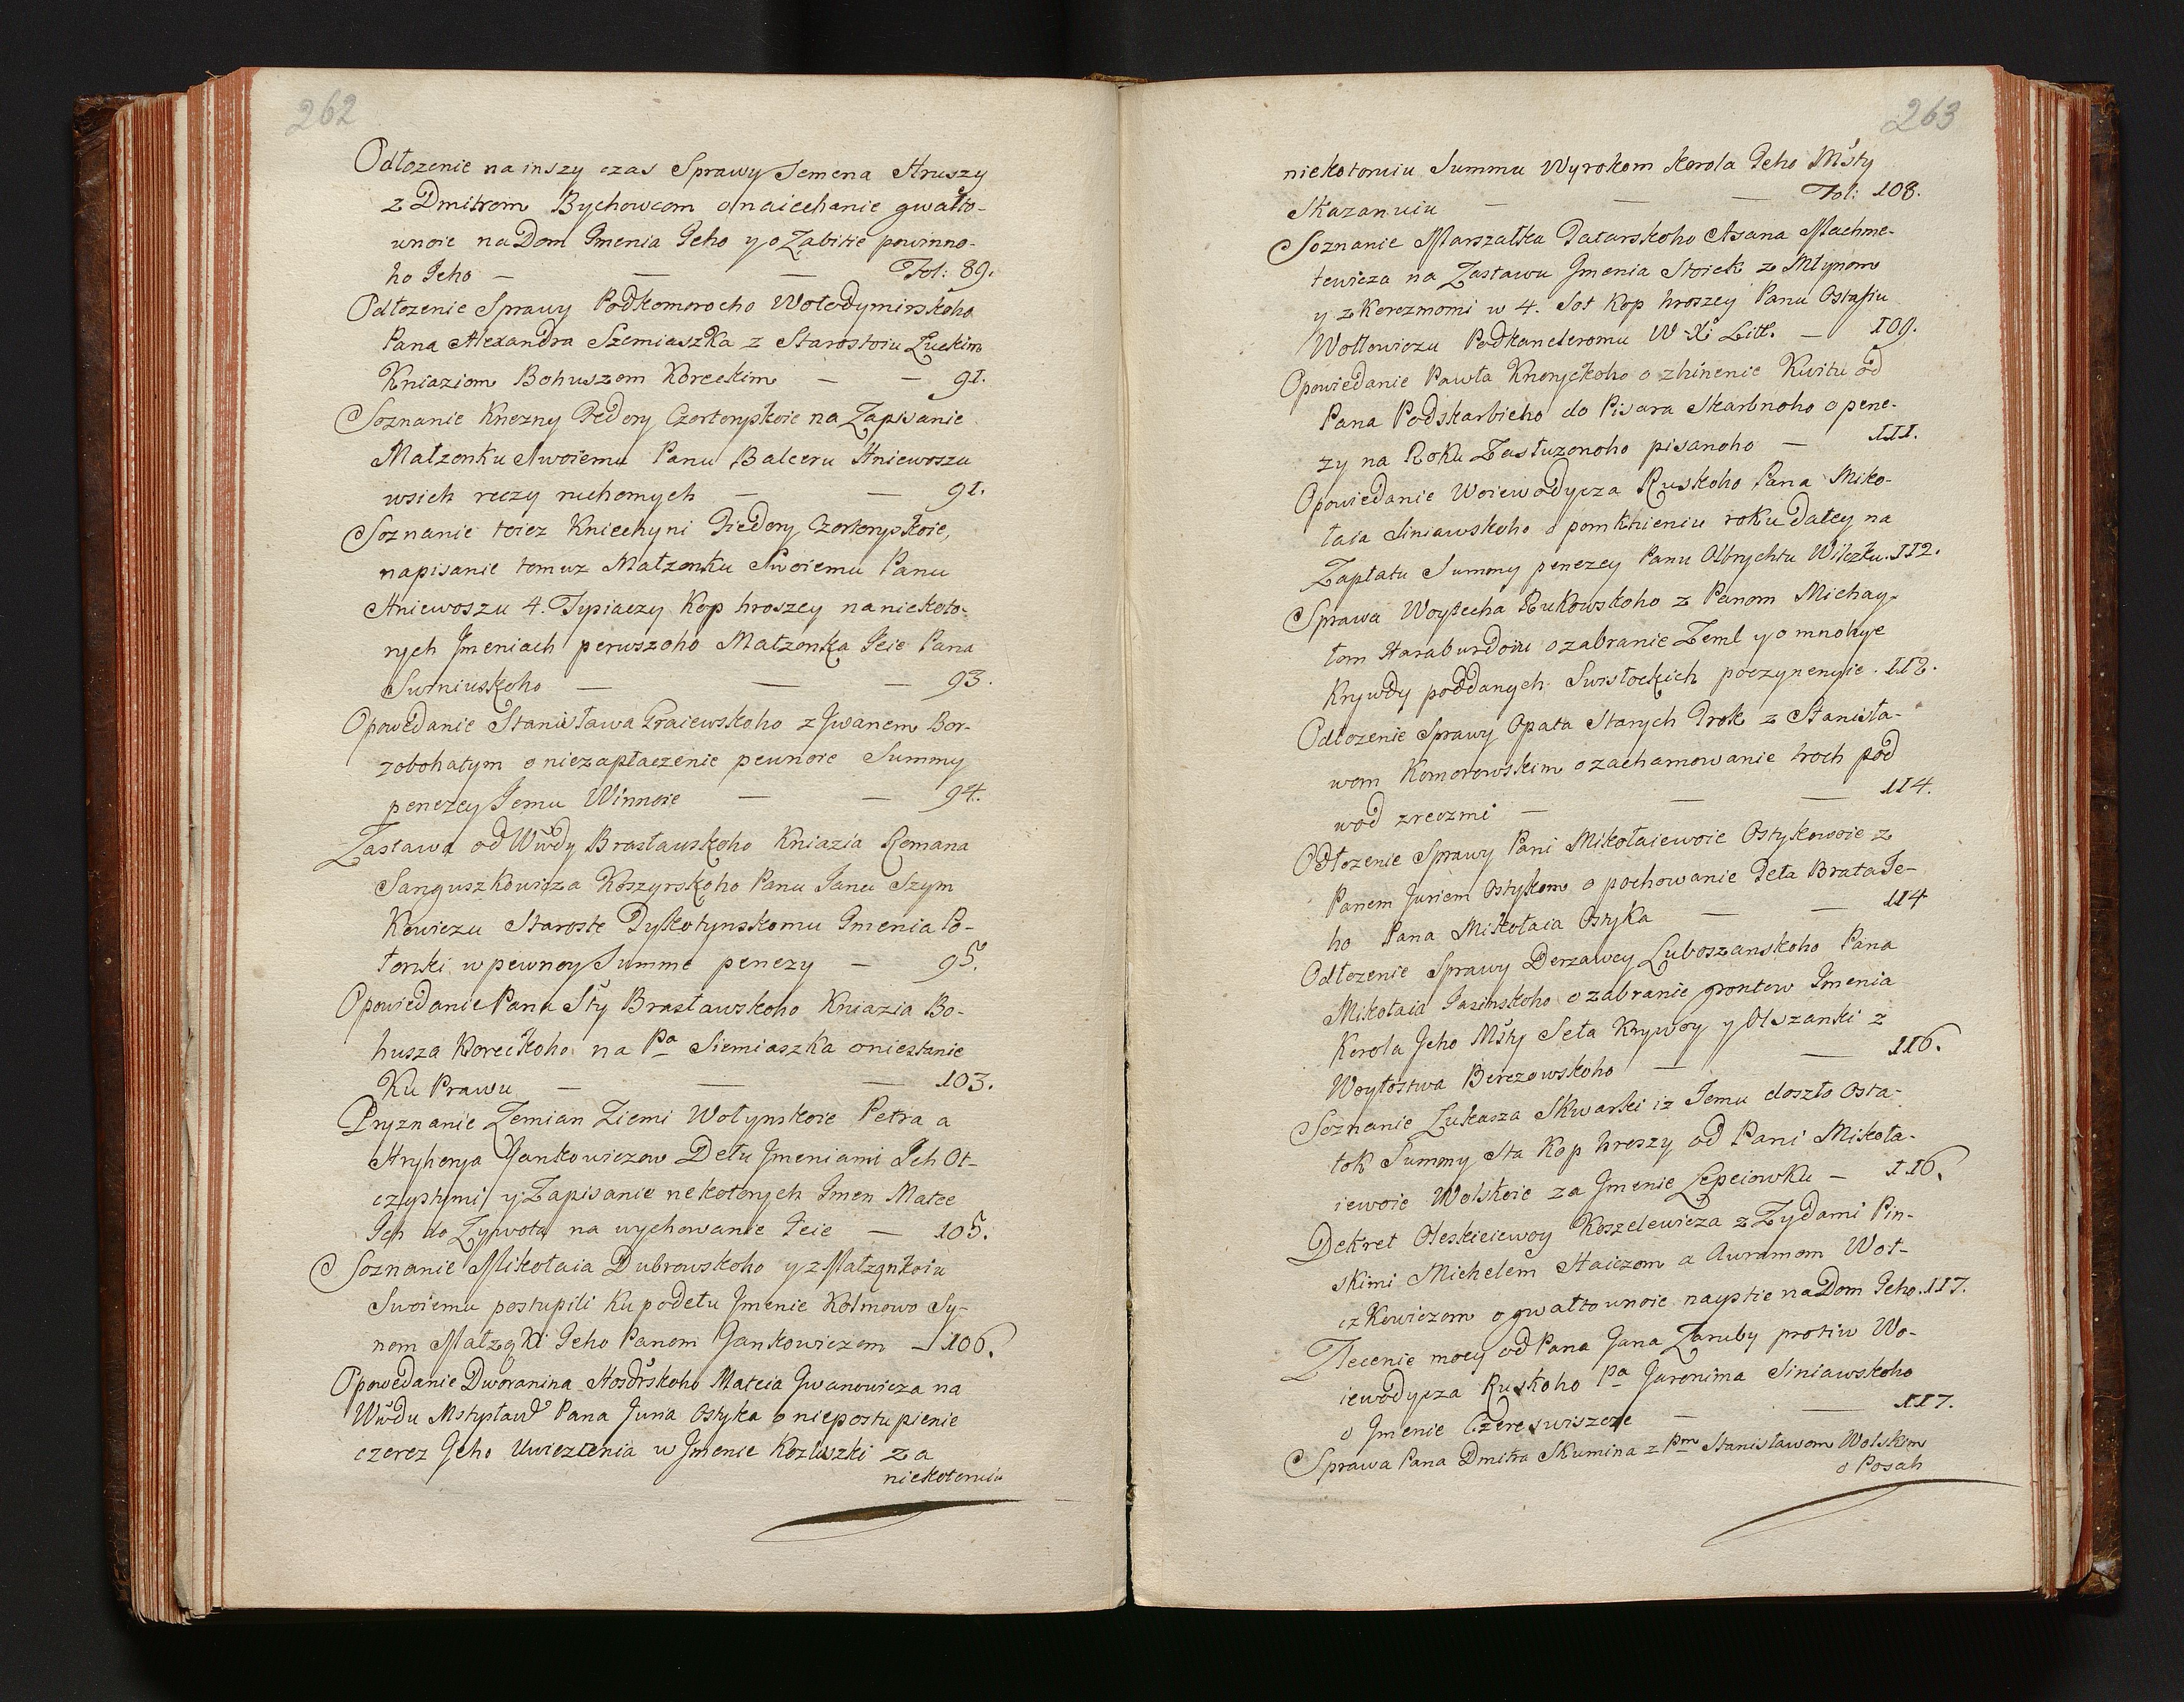 262
Odłozenie na inszy czas Sprawy Semena Hruszy
z Dmitrom Bychowcom o naiechanie gwałto-
wnoie na Dom Jmenia Jeho y o Zabitie powinno-
ho Jeho — — — Fol: 89.
Odłozenie Sprawy Podkomorocho Wołodymirskoho
Pana Alexandra Szemiaszka z Starostoiu Łuckim
Kniaziom Bohuszom Koreckim — — 91.
Soznanie Knezny Fedory Czortoryskoie na Zapisanie
Małzonku Swoiemu Panu Balceru Hniewoszu
wsich reczy ruchomych — — 91.
Soznanie toiez Kniechyni Fiedory Czortoryskoie,
napisanie tomuz Małzonku Swoiemu Panu
Hniewoszu 4. Tysiaczy Kop hroszey na niekoto-
rych Jmeniach perwszoho Małzonka Jeie Pana
Surniuskoho — — — 93.
Opowedanie Stanisława Graiewskoho z Jwanem Bor-
zobohatym o niezapłaczenie pewnoie Summy
penezey Jemu Winnoie — — 94.
Zastawa od Wwdy Brasławskoho Kniazia Romana
Sanguszkowicza Koszyrskoho Panu Janu Szym
Kowiczu Staroste Tyskotynskomu Jmenia Po-
łonki w pewnoy Summe penezy — 95.
Opowiedanie Pana Sty Brasławskoho Kniazia Bo-
husza Koreckoho na Pa Siemiaszka o niestanie
Ku Prawu — — — 103.
Pryznanie Zemian Ziemi Wołynskoie Petra a
Hryhorya Jankowiczow Dełu Jmeniami Jch Ot-
czystymi y Zapisanie nekotorych Jmen Matce
Jch do Zywota na wychowanie Jeie — 105.
Soznanie Mikołaia Dubrowskoho y z Małzonkoiu
Swoiemu postupili ku podełu Jmenie Kołmowo Sy-
nom Małzonki Jeho Panom Jankowiczom — 106.
Opowedanie Dworanina Hosdrskoho Mateia Jwanowicza na
Wwdu Mstysław Pana Juria Ostyka o niepostupienie
czerez Jeho Uwiezcenia w Jmenie Kozluszki za
niekotoruiu
263
niekotoruiu Summu Wyrokom Korola Jeho Msty
Skazanuiu — — — Fol: 108.
Soznanie Marszałka Tatarskoho Asana Machme-
tewicza na Zastawu Jmenia Stoiek z Młynom
y z Korczmomi w 4. Sot Kop hroszey Panu Ostafiu
Wołłowiczu Podkancleromu W Xi Litt. — 109.
Opowiedanie Pawła Knoryckoho o zhinenie Kwitu od
Pana Podskarbieho do Pisara Skarbnoho o pene-
zy na Roku Zasłuzonoho pisanoho — 111.
Opowiedanie Woiewodycza Ruskoho Pana Miko-
łaia Siniawskoho o pomknieniu roku Daley na
Zapłatu Summy penezey Panu Olbrychtu Wilczku. 112.
Sprawa Woytecha Rukowskoho z Panom Michay-
łom Haraburdoiu o zabranie Zeml y o mnohye
Krywdy poddanych Swisłockich poczynenyie. 112.
Odłozenie Sprawy Opata Starych Trok z Stanisła-
wom Komorowskim o zachamowanie hroch pod
wod zreczmi — — — 114.
Odłozenie Sprawy Pani Mikołaiewoie Ostykowoie z
Panem Juriem Ostykom o pochowanie Teła Brata Je-
ho Pana Mikołaia Ostyka — — 114
Odłozenie Sprawy Derzawcy Luboszanskoho Pana
Mikołaia Jasinskoho o zabranie grontow Jmenia
Korola Jeho Msty Seła Krywoy y Olszanki z
Woytostwa Berezowskoho — — 116.
Soznanie Łukasza Skwarki iz Jemu doszło osta-
tok Summy Sta Kop hroszy od Pani Mikoła-
iewoie Wolskoie za Jmenie Lepeiowku — 116.
Dekret Oleskieiewoy Koszelewicza z Zydami Pin-
skimi Michelem Haiczom a Auramom Woł-
czkowiczom o gwałtownoie naystie na Dom Jeho. 117.
Zlecenie mocy od Pana Jana Zaruby protiw Wo-
iewodycza Ruskoho Pa Jaronima Siniawskoho
o Jmenie Czereswiszcze — — 117.
Sprawa Pana Dmitra Skumina z Pm Stanisławom Wolskim
o Posah